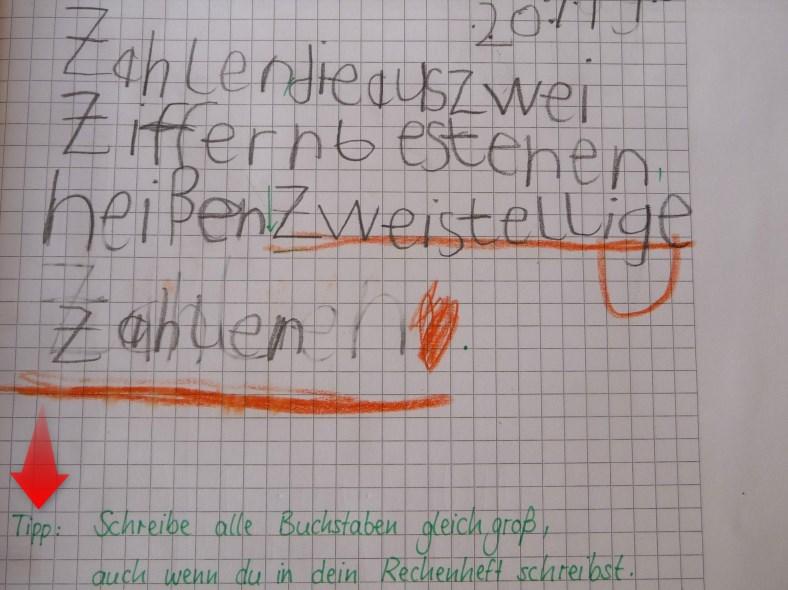 Zahlen die aus zwei
Ziffern bestehen,
heißen Zweistellige
Zahlen.
Tipp: Schreibe alle Buchstaben gleich groß,
auch wenn du in dein Rechenheft schreibst.